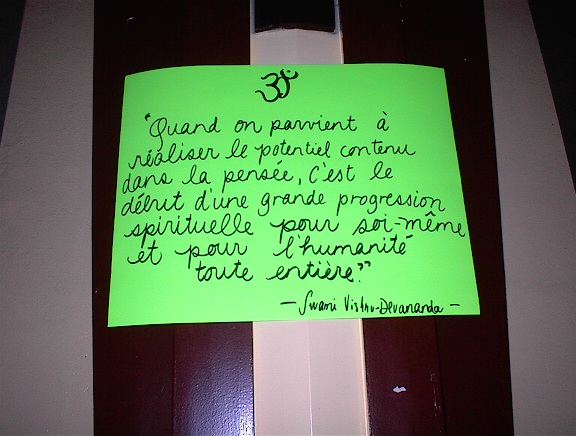 ॐ
"Quand on parvient à
réaliser le potentiel contenu
dans la pensée, c'est le
début d'une grande progression
spirituelle pour soi-même
et pour l'humanité
toute entière."
— Swami Vishnu-Devananda —